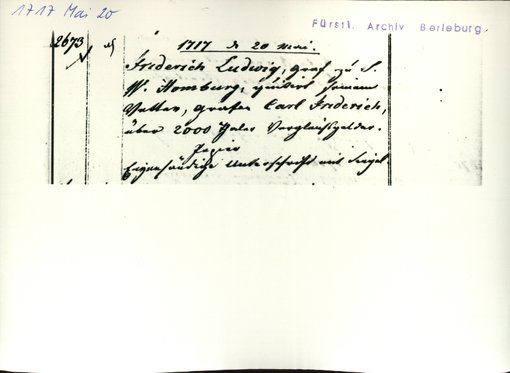 1717 Mai 20
Fürstl. Archiv Berleburg
2673
1717 d 20 Mai.
Friderich Ludwig, Graf zu S.
W. Homburg, quitirt seinem
Vetter, Grafen Carl Friderich,
über 2000 Taler Vergleichsgelder.
Papier
Eigenhändige Unterschrift mit Siegel